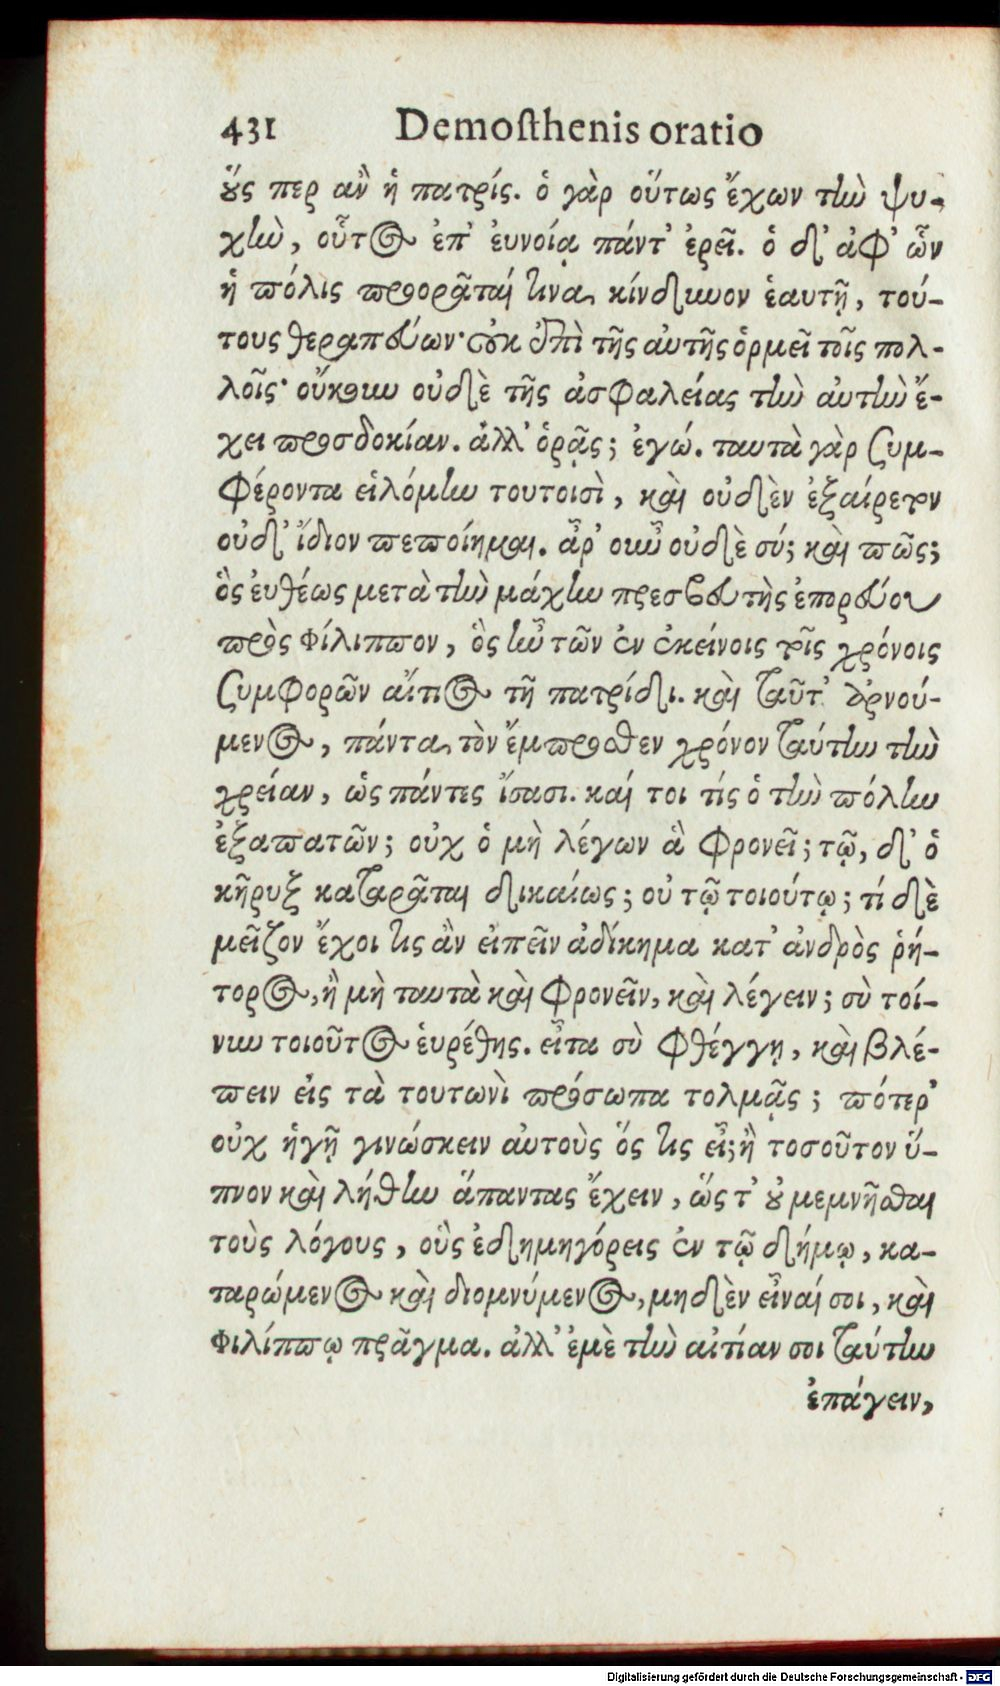 431 Demosthenis oratio
οὕς περ ἂν ἡ πατρίς. ὁ γὰρ οὕτως ἔχων τὴν ψυ-
χὴν, οὗτος ἐπ' ἐυνοίᾳ πάντ' ἐρεῖ. ὁ δ' ἀφ' ὧν
ἡ πόλις προορᾶταί τινα κίνδυνον ἑαυτῇ, τού-
τους θεραπεύων· οὐκ ἐπὶ τῆς αὐτῆς ὁρμεῖ τοῖς πολ-
λοῖς· οὔκουν οὐδὲ τῆς ἀσφαλείας τὴν ἀυτὴν ἔ-
χει προσδοκίαν. ἀλλ' ὁρᾷς; ἐγώ. ταυτὰ γὰρ συμ-
φέροντα εἱλόμην τουτοισὶ, καὶ οὐδὲν ἐξαίρετον
οὐδ' ἴδιον πεποίημαι. ἆρ' οὖν οὐδὲ σύ; καὶ πῶς;
ὃς ἐυθέως μετὰ τὴν μάχην πρεσβευτὴς ἐπορεύου
πρὸς Φίλιππον, ὃς ἦν τῶν ἐν ἐκείνοις τοῖς χρόνοις
συμφορῶν αἴτιος τῇ πατρίδι. καὶ ταῦτ' ἀρνού-
μενος, πάντα τὸν ἔμπροσθεν χρόνον ταύτην τὴν
χρείαν, ὡς πάντες ἴσασι. καί τοι τίς ὁ τὴν πόλην
ἐξαπατῶν; οὐχ ὁ μὴ λέγων ἃ φρονεῖ; τῷ, δ' ὁ
κῆρυξ καταρᾶται δικαίως; οὐ τῷ τοιούτῳ; τί δὲ
μεῖζον ἔχοι τις ἂν εἰπεῖν ἀδίκημα κατ' ἀνδρὸς ῥή-
τορος, ἢ μὴ ταυτὰ καὶ φρονεῖν, καὶ λέγειν; σὺ τοί-
νυν τοιοῦτος ἑυρέθης. εἶτα σὺ φθέγγῃ, καὶ βλέ-
πειν εἰς τὰ τουτωνὶ πρόσωπα τολμᾷς; πότερ'
οὐχ ἡγῇ γινώσκειν ἀυτοὺς ὅς τις εἶ; ἢ τοσοῦτον ὕ-
πνον καὶ λήθην ἅπαντας ἔχειν, ὥς τ' οὐ μεμνῆσθαι
τοὺς λόγους, οὓς ἐδημηγόρεις ἐν τῷ δήμῳ, κα-
ταρώμενος καὶ διομνύμενος, μηδὲν εἶναί σοι, καὶ
Φιλίππῳ πρᾶγμα. ἀλλ' ἐμὲ τὴν αἰτίαν σοι ταύτην
ἐπάγειν,
Digitalisierung gefördert durch die Deutsche Forschungsgemeinschaft - DFG